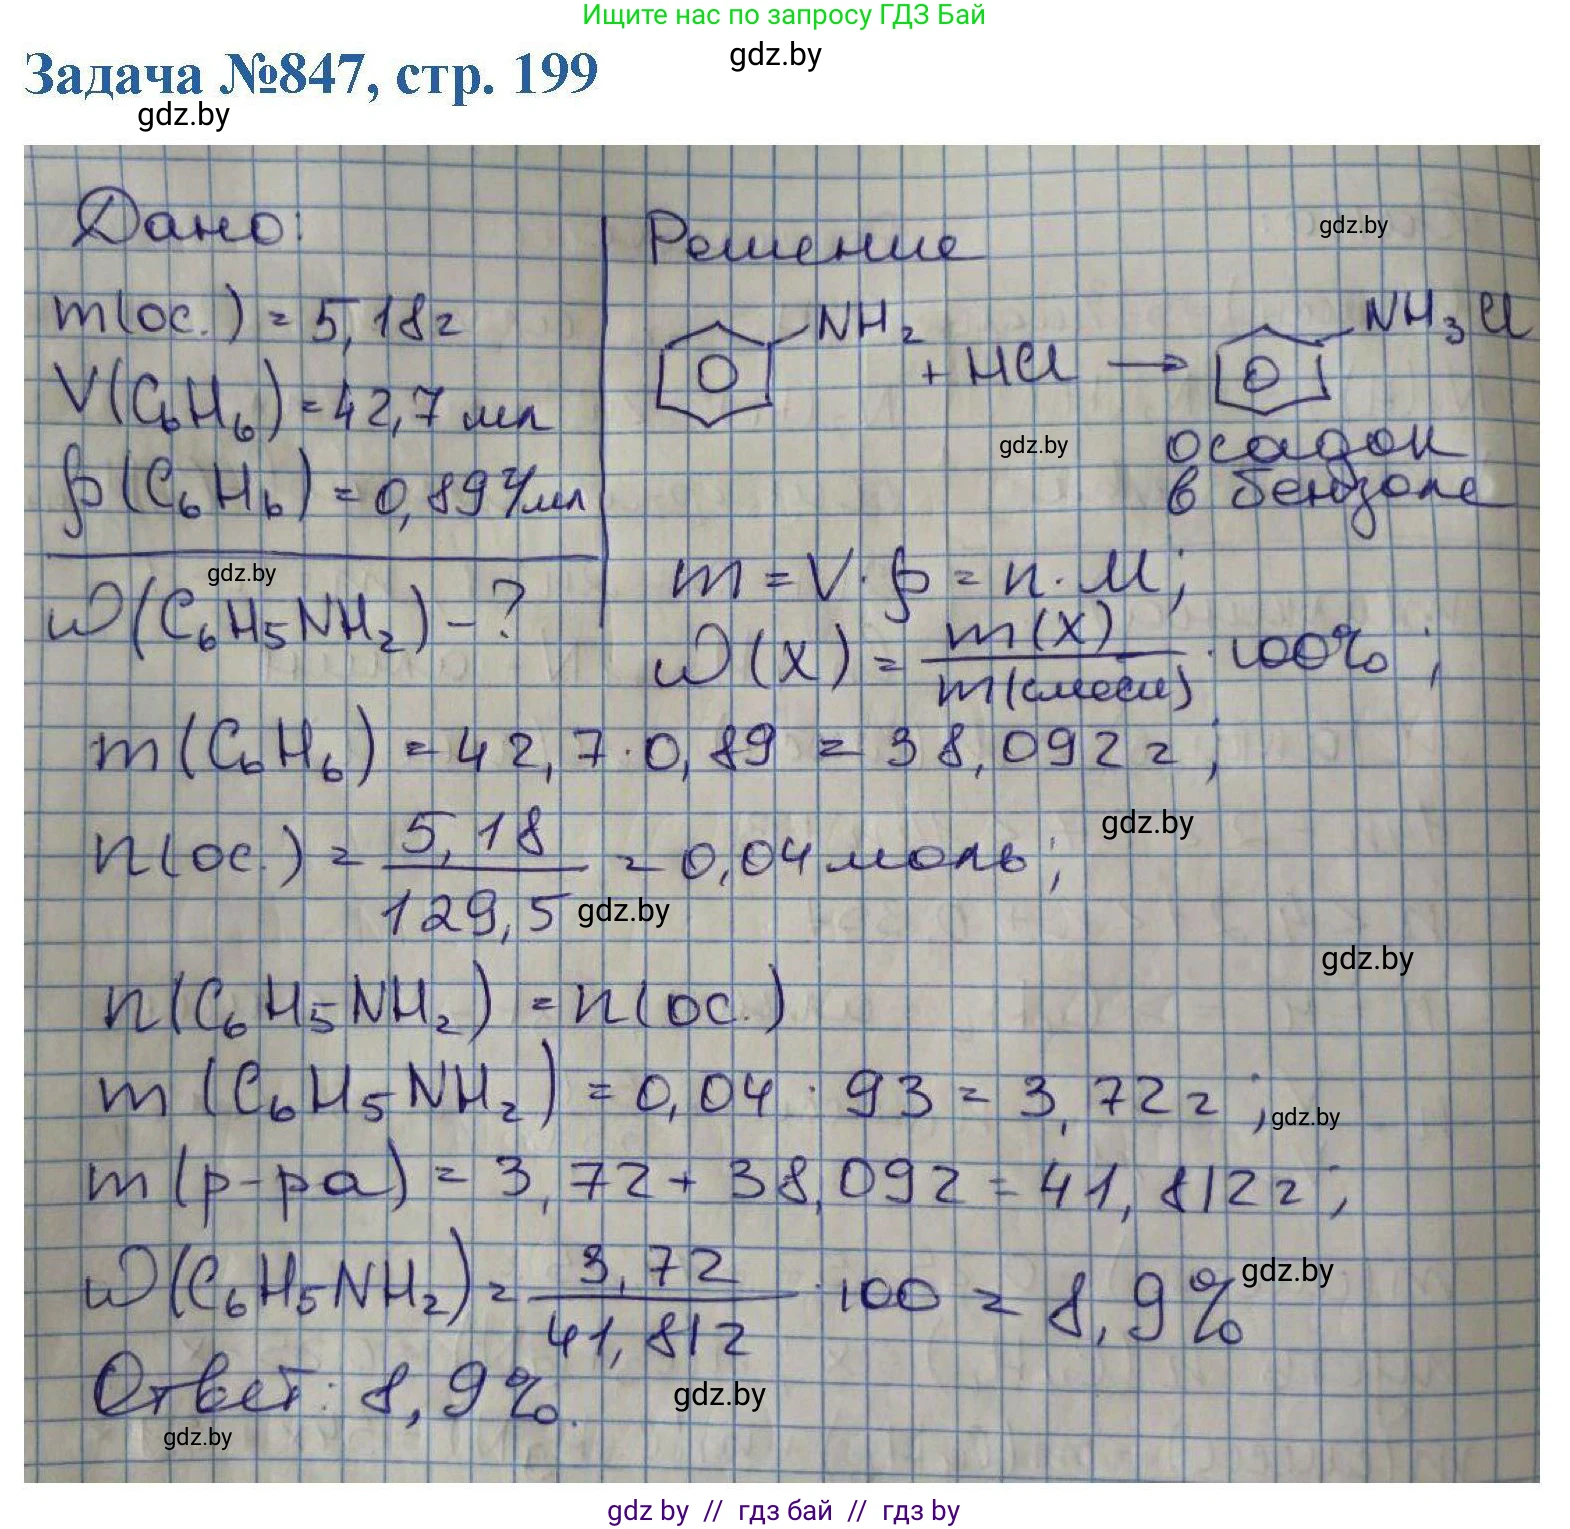 Ищите нас по запросу ГДЗ Бай
gdz.by
Задача №847, стр. 199
gdz.by
Дано:
m(ос.) = 5,18г
V(C₆H₆) = 42,7 мл
ρ(C₆H₆) = 0,89 г/мл
gdz.by
ω(C₆H₅NH₂) - ?
Решение
gdz.by
NH₂ + HCl → NH₃Cl
gdz.by
осадок
в бензоле
m = V · ρ = n · M;
ω(X) = m(X) / m(смеси) · 100% ;
m(C₆H₆) = 42,7 · 0,89 = 38,092 г ;
gdz.by
n(ос.) = 5,18 / 129,5 = 0,04 моль ;
gdz.by
gdz.by
n(C₆H₅NH₂) = n(ос.)
m(C₆H₅NH₂) = 0,04 · 93 = 3,72 г ;
gdz.by
m(р-ра) = 3,72 + 38,092 = 41,812 г ;
ω(C₆H₅NH₂) = 3,72 / 41,812 · 100 = 8,9%
gdz.by
Ответ: 8,9%.
gdz.by
gdz.by
gdz by // гдз бай // гдз by